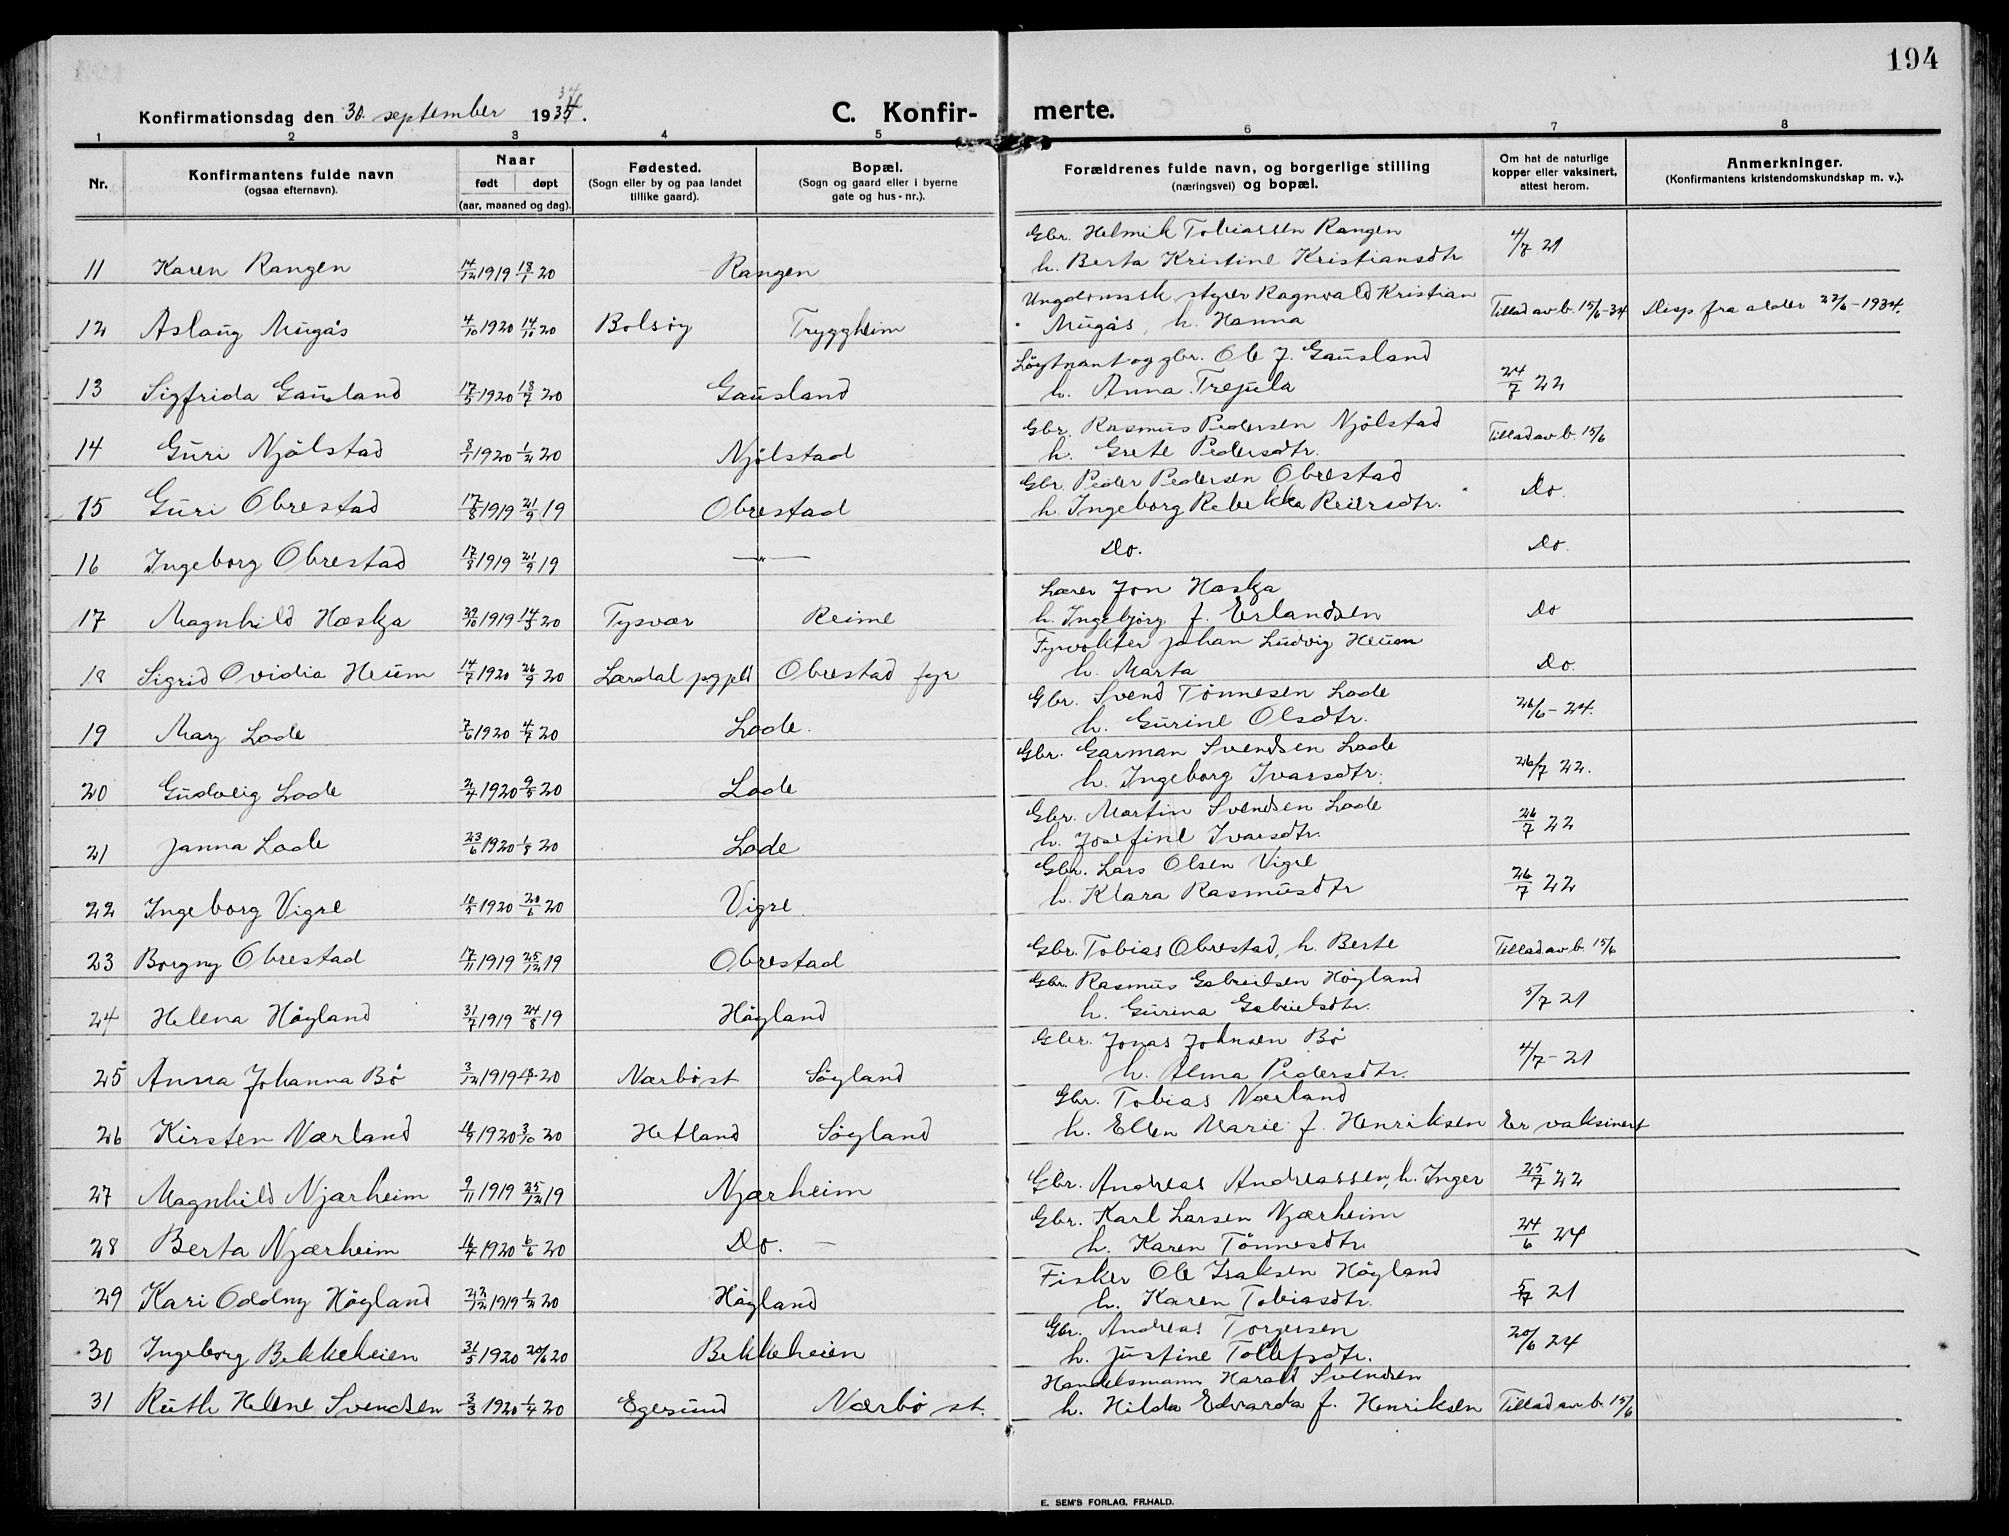 194
Konfirmationsdag den 30. september 1934.
C. Konfirmerte.
1 2 3 4 5 6 7 8
Nr. Konfirmantens fulde navn (ogsaa efternavn). Naar født døpt (aar, maaned og dag). Fødested. (Sogn eller by og paa landet tillike gaard). Bopæl. (Sogn og gaard eller i byerne gate og hus-nr.). Forældrenes fulde navn, og borgerlige stilling (næringsvei) og bopæl. Om hat de naturlige kopper eller vaksinert, attest herom. Anmerkninger. (Konfirmantens kristendomskundskap m. v.).
Gbr. Helmik Tobiassen Rangen
11 Karen Rangen 14/12 1919 18/1 20 Rangen h. Berta Kristine Kristiansdtr 4/7 21
Ungdomssk. styrer Ragnvald Kristian
12 Aslaug Mugås 4/10 1920 14/10 20 Bolsøy Tryggheim Mugås, h. Hanna Tillad av b. 15/6-34 Disp fra alder 22/6-1934.
Løytnant og gbr. Ole J. Gausland
13 Sigfrida Gausland 17/5 1920 18/7 20 Gausland h. Anna Trejula 24/7 22
Gbr. Rasmus Pedersen Njølstad
14 Guri Njølstad 8/1 1920 1/2 20 Njølstad h. Grete Pedersdtr. Tillad av b. 15/6
Gbr. Peder Pedersen Obrestad
15 Guri Obrestad 17/8 1919 21/9 19 Obrestad h. Ingeborg Rebekka Reiersdtr. Do.
16 Ingeborg Obrestad 17/8 1919 21/9 19 —"— Do. Do.
Lærer Jon Haskja
17 Magnhild Haskja 29/10 1919 14/3 20 Tysvær Reime h. Ingebjørg f. Erlandsen Do
Fyrvokter Johan Ludvig Heum
18 Sigrid Ovidia Heum 14/7 1920 26/9 20 Lærdal pgjeld Obrestad fyr h. Marta Do.
Gbr. Svend Tønnesen Lode
19 Mary Lode 7/6 1920 4/7 20 Lode. h. Gurine Olsdtr. 26/6-24.
Gbr. Garman Svendsen Lode
20 Gudveig Lode 2/4 1920 9/5 20 Lode h. Ingeborg Ivarsdtr. 26/7 22.
Gbr. Martin Svendsen Lode
21 Janna Lode 23/6 1920 1/8 20 Lode h. Josefine Ivarsdtr. 26/7 22
Gbr. Lars Olsen Vigre
22 Ingeborg Vigre 10/5 1920 20/6 20 Vigre h. Klara Rasmusdtr 26/7 22
23 Borgny Obrestad 17/11 1919 25/12 19 Obrestad Gbr. Tobias Obrestad, h. Berte Tillad av b. 15/6
Gbr. Rasmus Gabrielsen Høyland
24 Helena Høyland 31/7 1919 24/8 19 Høyland h. Gurina Gabrielsdtr. 5/7 21
Gbr. Jonas Johnsen Bø
25 Anna Johanna Bø 3/12 1919 20 Nærbø st Søyland h. Alma Pedersdtr. 4/7-21
Gbr. Tobias Nærland
26 Kirsten Nærland 1920 3/10 20 Hetland Søyland h. Ellen Marie f. Henriksen Er vaksinert
27 Magnhild Njærheim 9/11 1919 25/12 19 Njærheim Gbr. Andreas Andreassen, h. Inger 25/7 22
Gbr. Karl Larsen Njærheim
28 Berta Njærheim 16/4 1920 6/6 20 Do. — h. Karen Tønnesdtr. 24/6 24
Fisker Ole Isaksen Høyland
29 Kari Oddny Høyland 22/12 1919 1/2 20 Høyland h. Karen Tobiasdtr. 5/7 21
Gbr. Andreas Torgersen
30 Ingeborg Bekkeheien 31/5 1920 20/6 20 Bekkeheien h. Justine Tollefsdtr. 20/6 24
Handelsmann Harald Svendsen
31 Ruth Helene Svendsen 3/3 1920 1/4 20 Egersund Nærbø st. h. Hilda Edvarda f. Henriksen Tillad av b. 15/6
E. SEM'S FORLAG, FR.HALD.